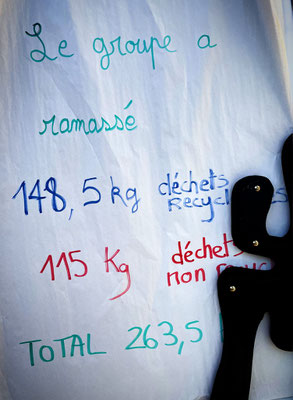 Le groupe a
ramassé
148,5 kg déchets
115 Kg déchets
non
TOTAL 263,5